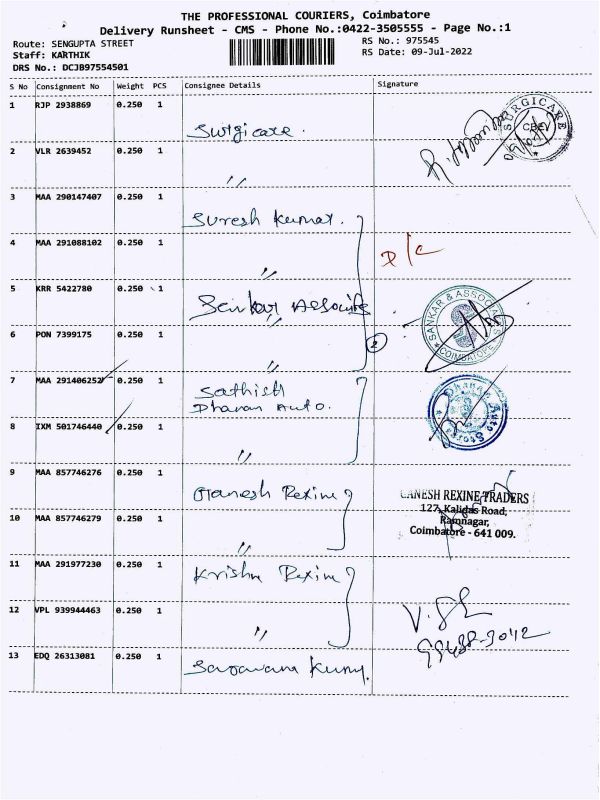 THE PROFESSIONAL COURIERS, Coimbatore
Delivery Runsheet - CMS - Phone No.:0422-3505555 - Page No.:1
Route: SENGUPTA STREET
RS No.: 975545
Staff: KARTHIK
RS Date: 09-Jul-2022
DRS No.: DCJB97554501
S No Consignment No Weight PCS Consignee Details Signature
1 RJP 2938869 0.250 1
Surgicare.
SURGICARE
CBE
2 VLR 2639452 0.250 1
〃
3 MAA 290147407 0.250 1
Suresh Kumar.
4 MAA 291088102 0.250 1
〃
D/C
5 KRR 5422780 0.250 1
Sankar Associate
〃
SANKAR & ASSOCIATES
COIMBATORE
6 PON 7399175 0.250 1
〃
2
7 MAA 291406252 0.250 1
Sathish
Dharan Auto.
Dharan Auto Stores
8 IXM 501746440 0.250 1
〃
9 MAA 857746276 0.250 1
Ganesh Rexine
GANESH REXINE TRADERS
127, Kalidas Road,
Ramnagar,
Coimbatore - 641 009.
10 MAA 857746279 0.250 1
〃
11 MAA 291977230 0.250 1
Krishna Rexine
12 VPL 939944463 0.250 1
〃
13 EDQ 26313081 0.250 1
Saravana Kumar.